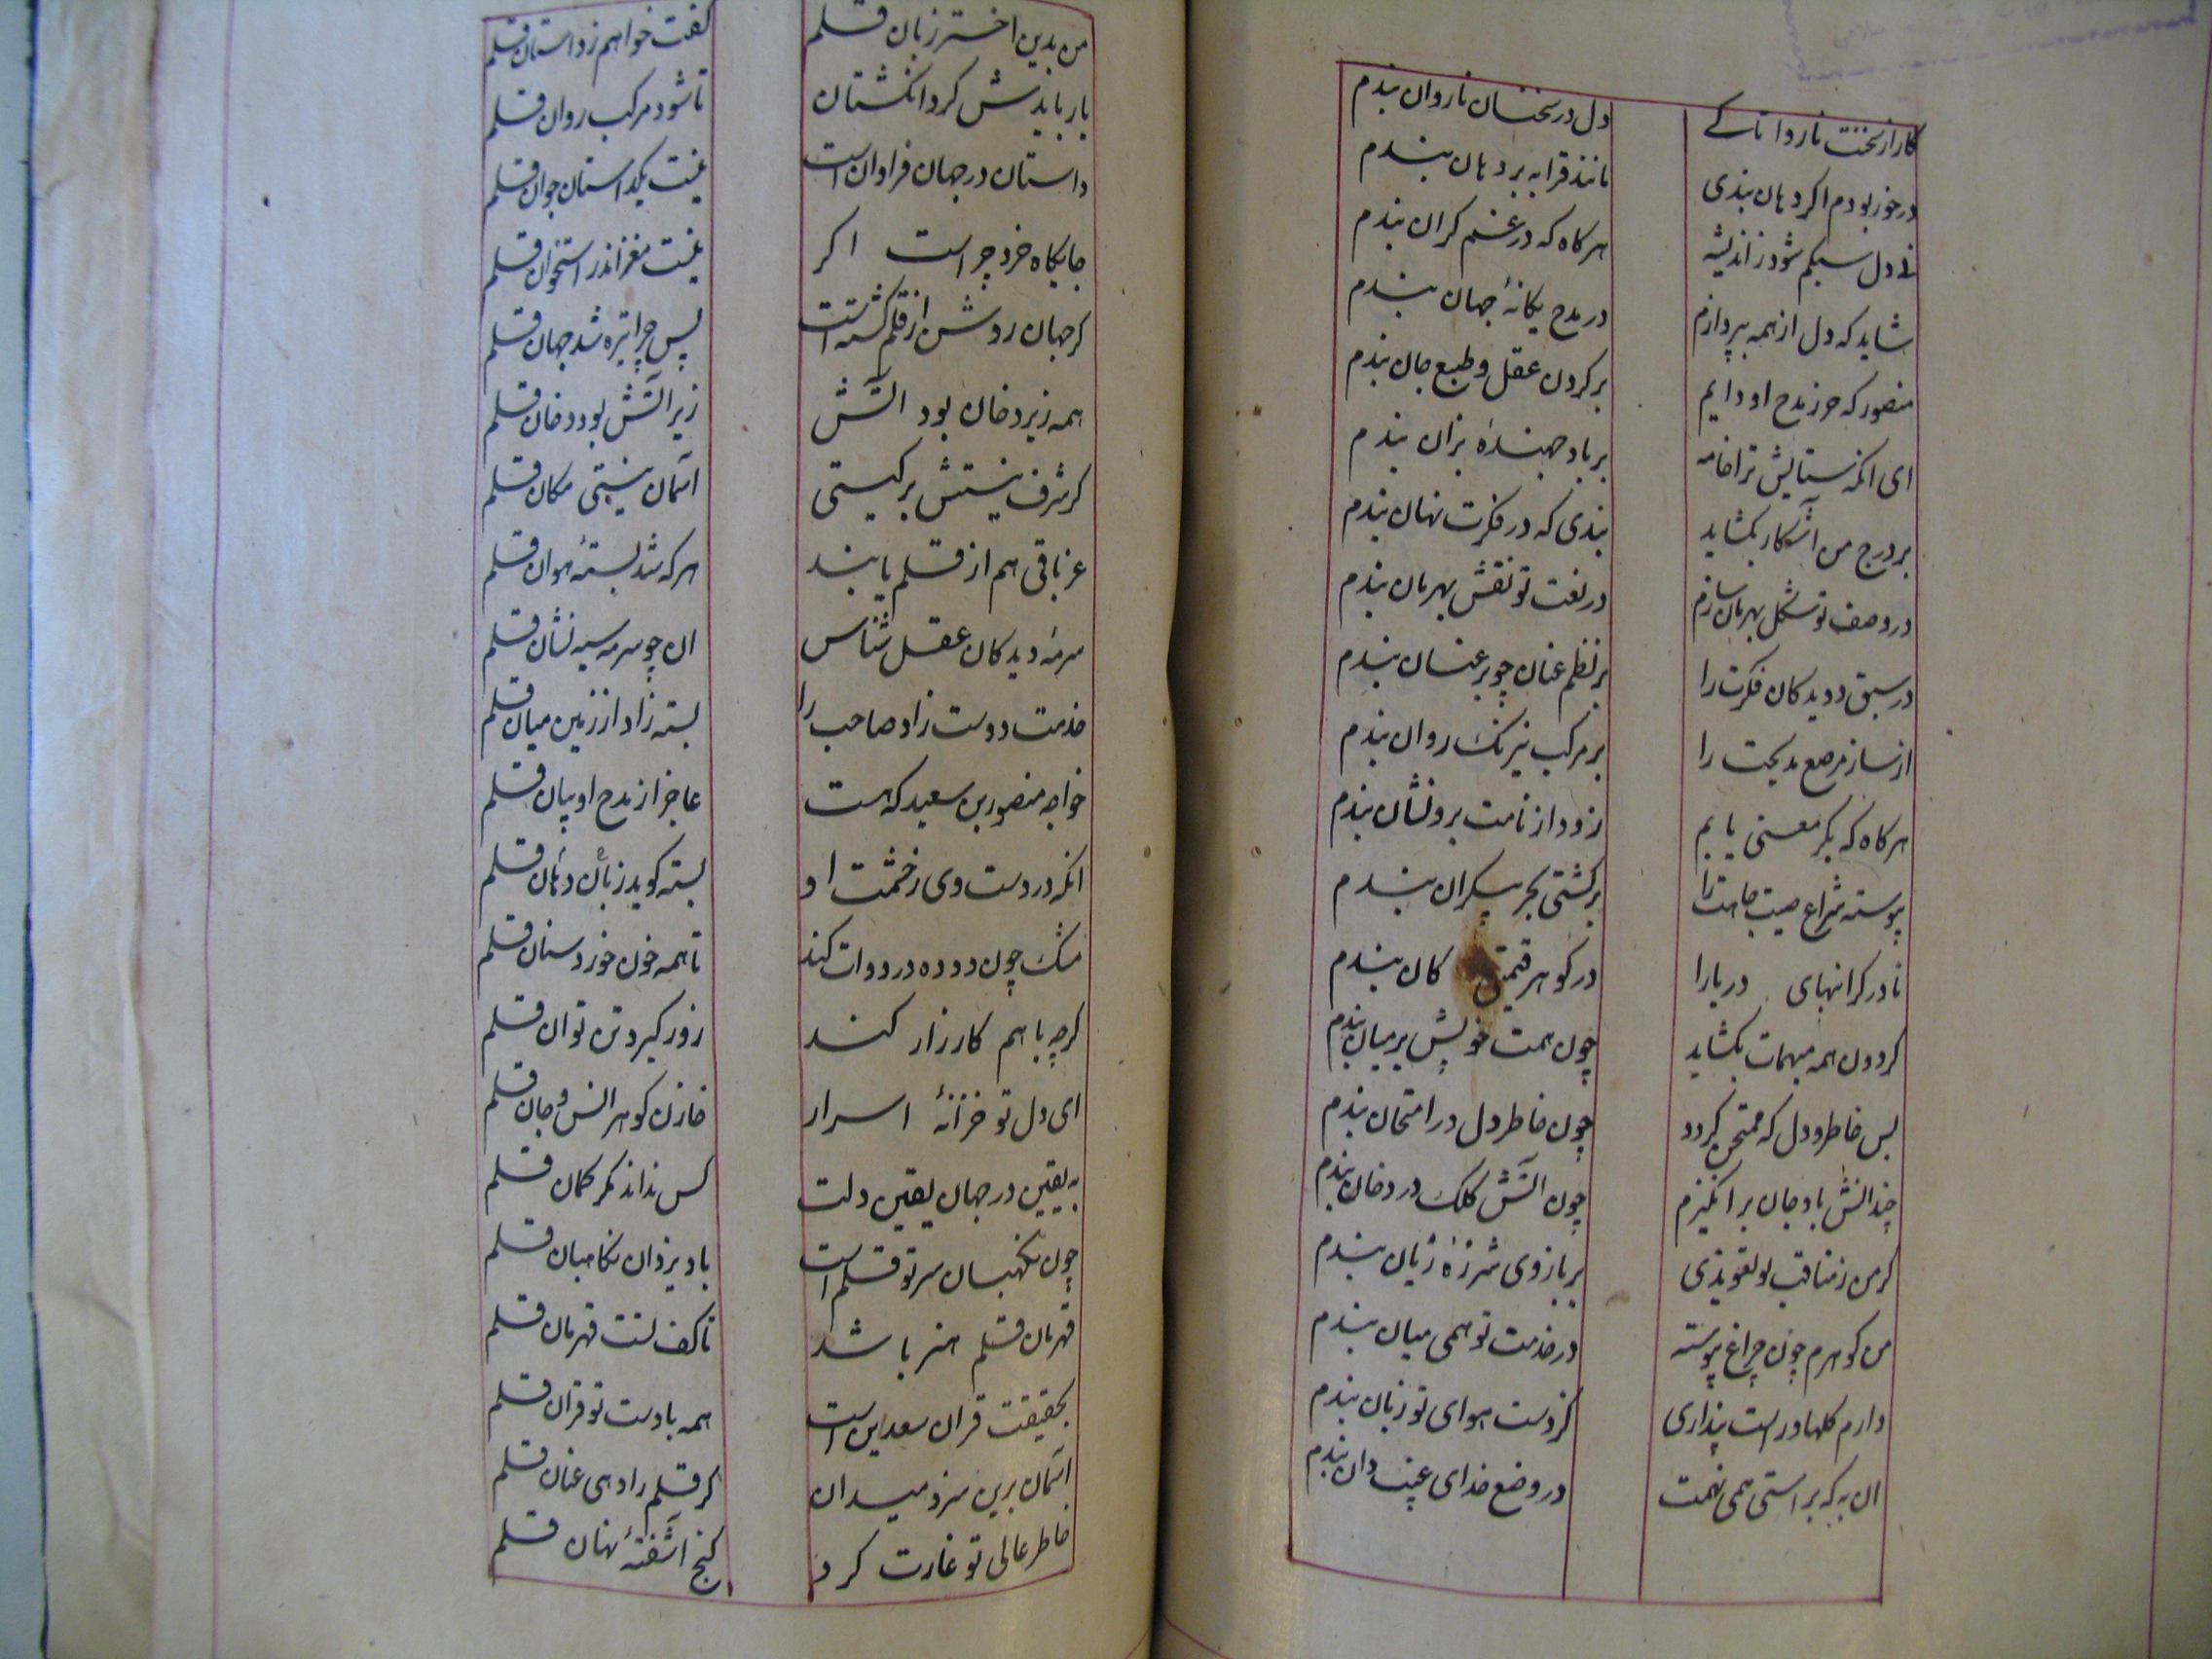 کار از سخنت ناروا تا کے دل در سخنان ناروان بندم
در خور بودم اگر دهان بندی مانند قرابه بر دهان بندم
نے دل سبکم شود ز اندیشه هر گاه که در غم گران بندم
شاید که دل از همه بپردازم در مدح یگانهٔ جهان بندم
منصور که حرز مدح او دایم بر گردن عقل و طبع و جان بندم
ای آنکه ستایش ترا خامه بر باد جهندهٔ بزان بندم
بر درج من آشکار بگشاید بندی که در فکرت نهان بندم
در وصف تو شکل بهرمان سازم در نعت تو نقش بهرمان بندم
در سبق دویدگان فکرت را بر نظم عنان چو بر عنان بندم
از ساز مرصع مدیحت را بر مرکب تیزتک روان بندم
هر گاه که بکر معنی یابم زود از نامت برو نشان بندم
پیوسته شراع صیت جاهت را بر کشتی بحر بیکران بندم
نادر گرانبهای دریا را در گوهر قیمتی کان بندم
گردون همه مبهمات بگشاید چون همت خویش بر میان بندم
بس خاطر و دل که ممتحن گردد چون خاطر و دل در امتحان بندم
چند آتش باد جان برانگیزم چون آتش کلک در دخان بندم
گر من ز مناقب تو تعویذی بر بازوی شرزهٔ ژیان بندم
من گوهرم چون چراغ پیوسته در خدمت تو همی میان بندم
دارم گلها و راست پنداری کز دست هوای تو زبان بندم
آن به که براستی همی نهمت در وضع خدای غیب دان بندم
من بدین اختر زبان قلم گفت خواهم ز داستان قلم
یار بایدش کرد انگشتان تا شود مرکب روان قلم
داستان در جهان فراوان است نیست یک داستان چو آن قلم
جایگاه خرد چراست اگر نیست مغز اندر استخوان قلم
گر جهان روشن از قلم گشته است پس چرا تیره شد جهان قلم
همه زیر دخان بود آتش زیر آتش بود دخان قلم
گر شرف نیستش بر گیتی آسمان نیستی مکان قلم
عز باقی هم از قلم یابند هر که شد بستهٔ هوان قلم
سرمهٔ دیدگان عقل شناس آن چو سرمه سیه نشان قلم
خدمت دوست زاد صاحب را بسته زاد از زمین میان قلم
خواجه منصور بن سعید که هست عاجز از مدح او بیان قلم
آنکه در دست وی ز خشمت او بسته گوید زبان دهان قلم
مشک چون دوده در دوات کند تا همه خون خورد سنان قلم
گرچه با هم کارزار کند زور گیرد تن توان قلم
ای دل تو خزانهٔ اسرار خازن گوهر انس و جان قلم
به یقین در جهان یقین دلت کس نداند مگر گمان قلم
چون نگهبان سر تو قلم است باد یزدان نگاهبان قلم
قهرمان قلم هنر باشد تا کف تست قهرمان قلم
بحقیقت قران سعدین است همه با دست تو قران قلم
آسمان برین سزد میدان گر قلم را دهی عنان قلم
خاطر عالی تو غارت کرد گنج آشفتهٔ نهان قلم